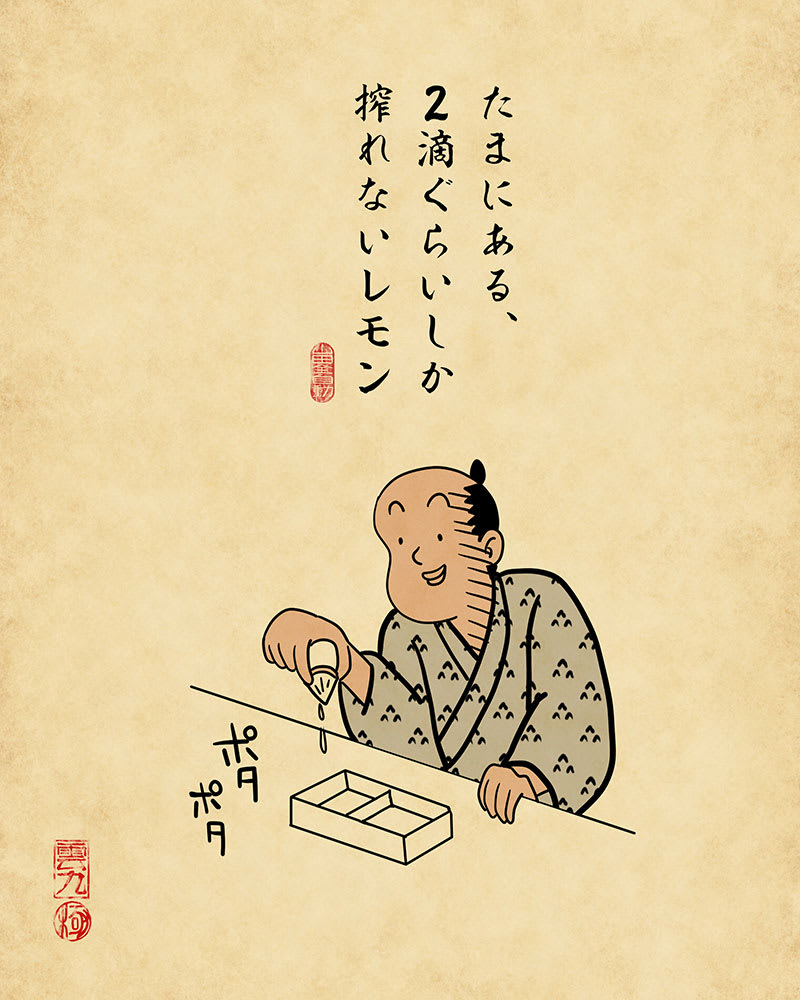 たまにある、
2滴ぐらいしか
搾れないレモン
ポタ
ポタ